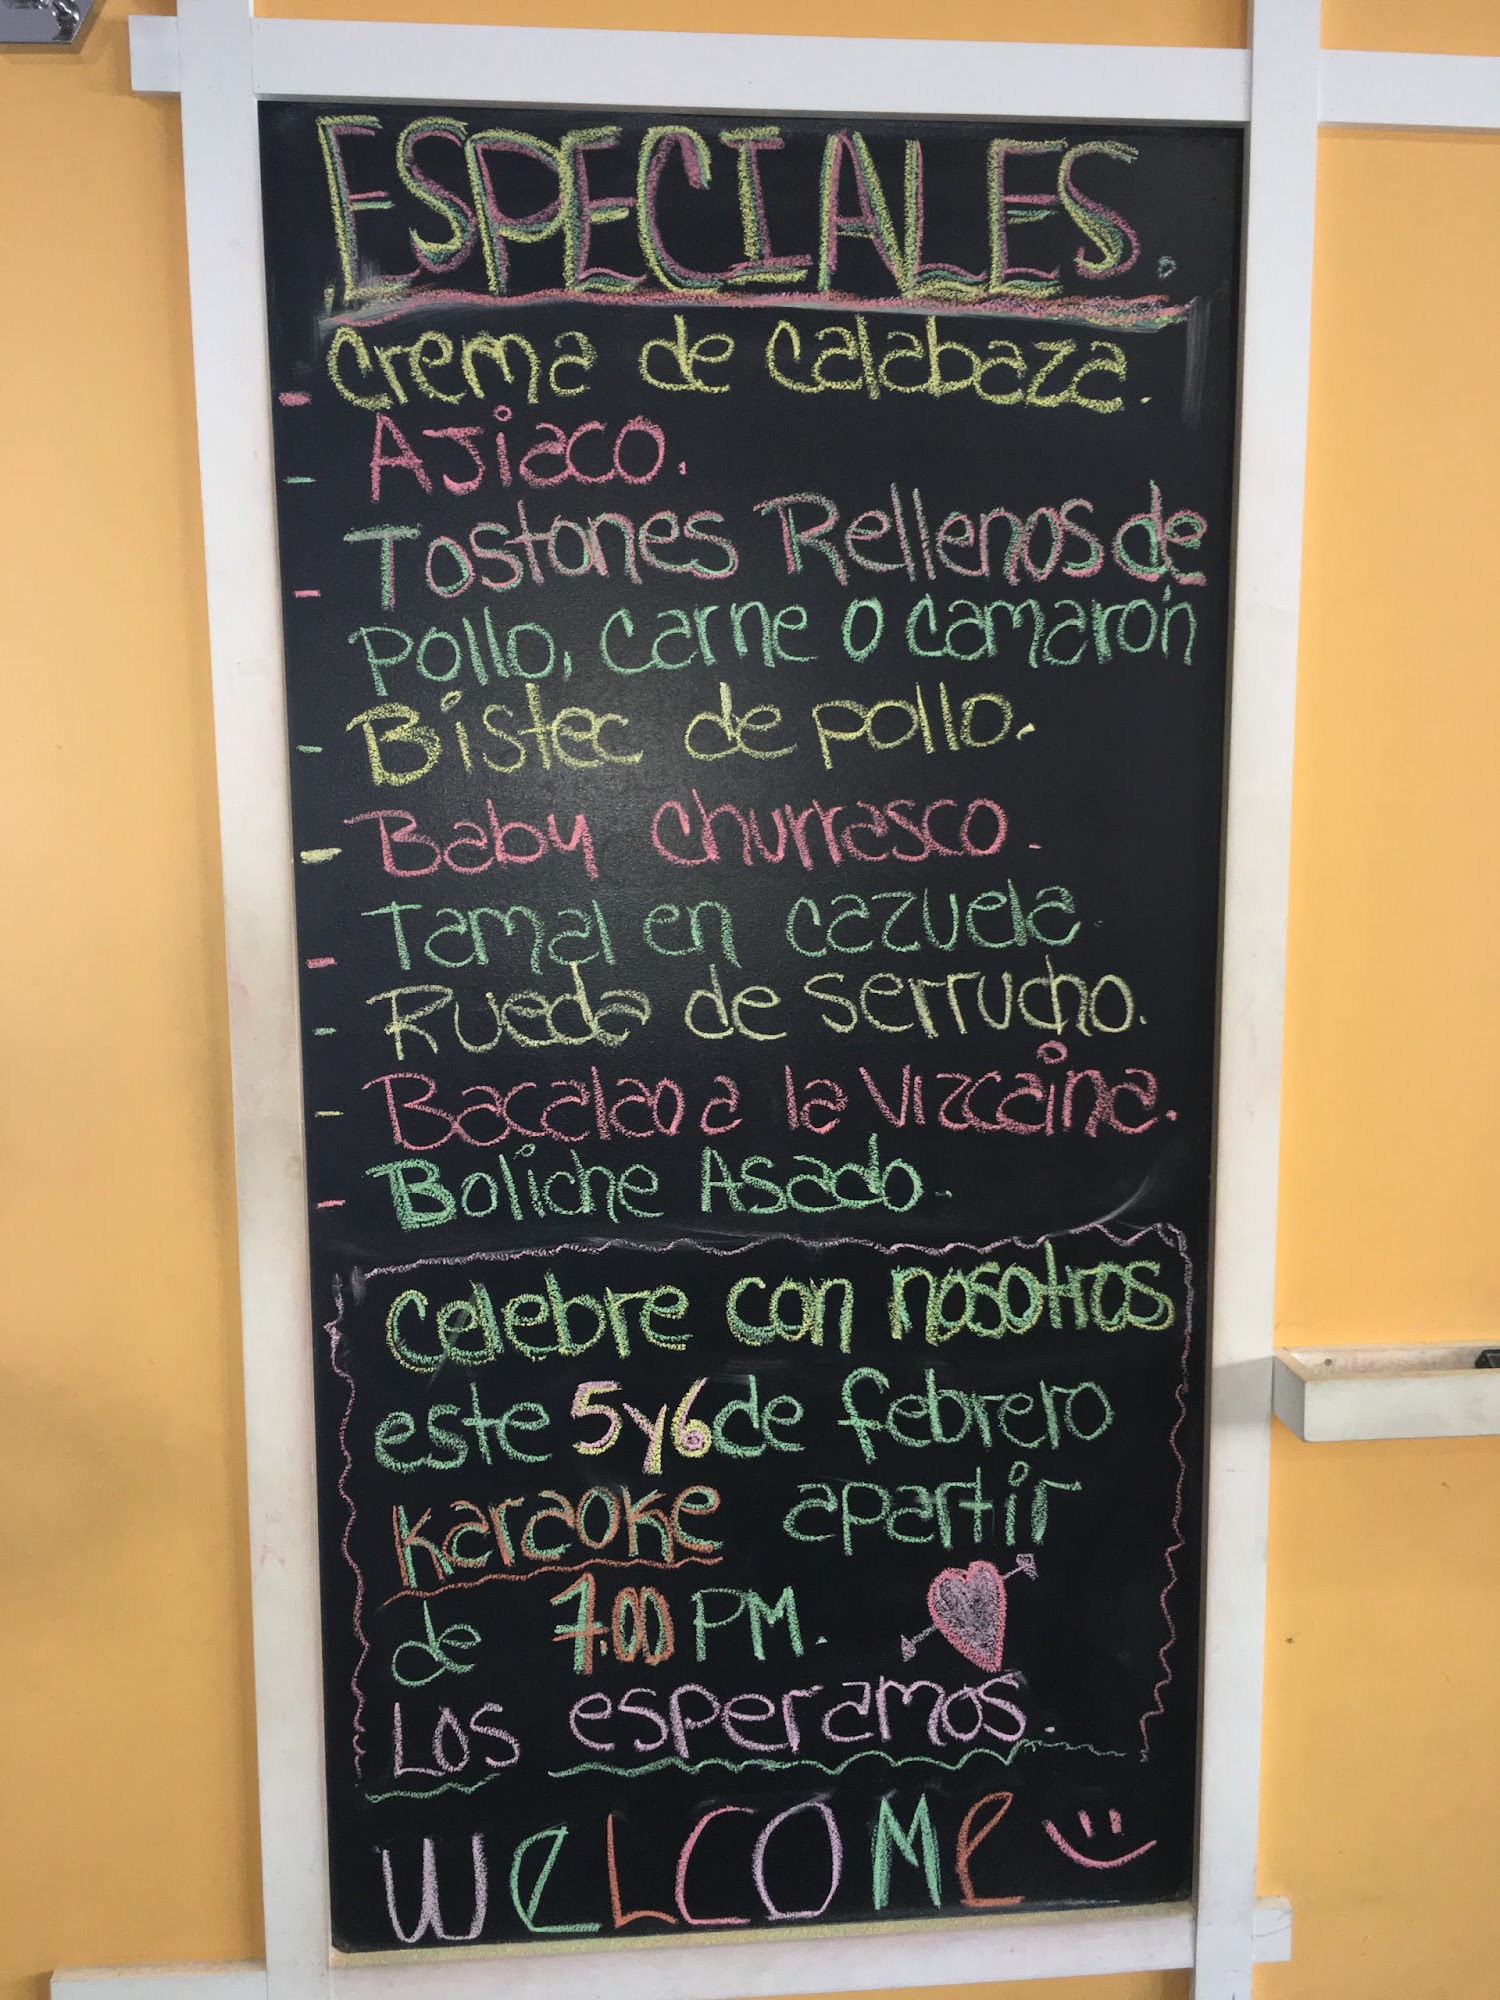 ESPECIALES.
- Crema de Calabaza.
- AJiaco.
- Tostones Rellenos de
pollo, carne o camarón
- Bistec de pollo.
- Baby churrasco.
- Tamal en cazuela.
- Rueda de serrucho.
- Bacalao a la Vizcaina.
- Boliche Asado.
Celebre con nosotros
este 5y6 de febrero
Karaoke apartir
de 7.00 PM.
Los esperamos.
WeLCOMe